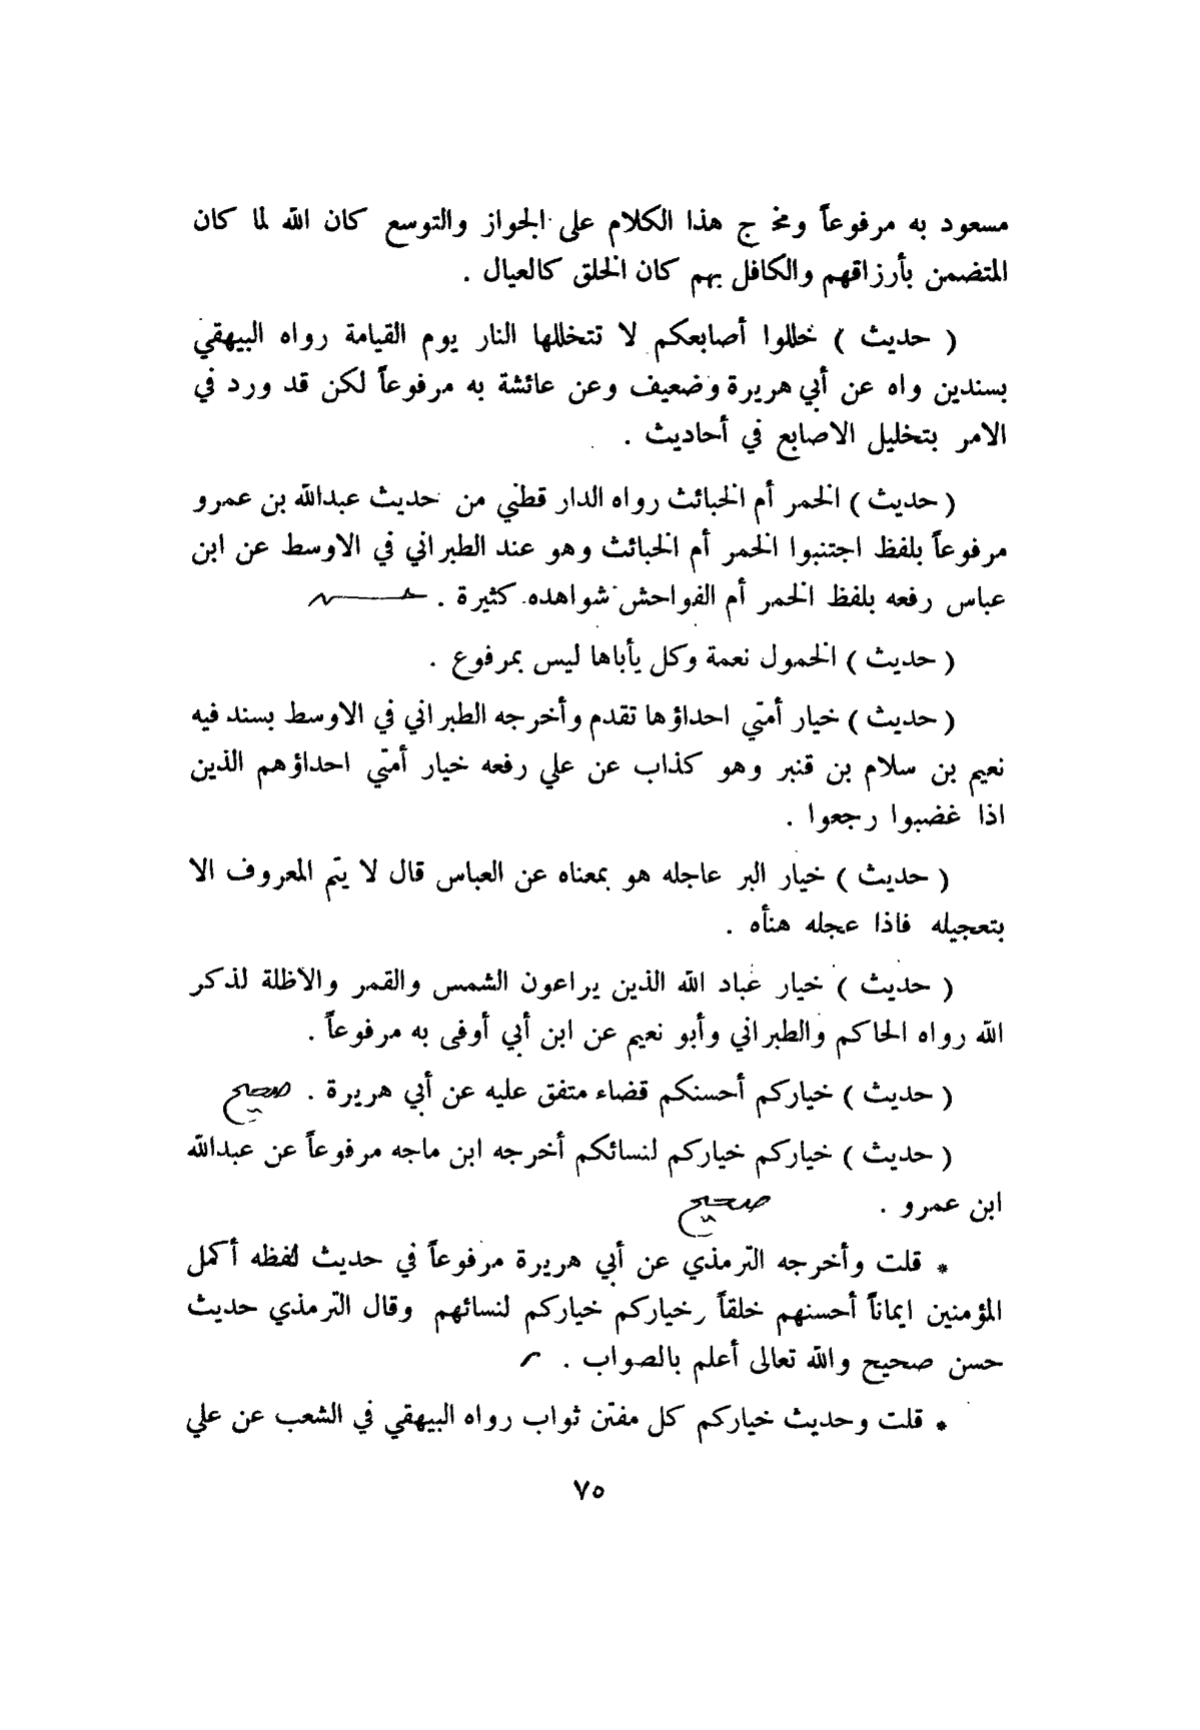 مسعود به مرفوعاً ومخ ج هذا الكلام على الجواز والتوسع كان الله لما كان
المتضمن بأرزاقهم والكافل بهم كان الخلق كالعيال .
( حديث ) خللوا أصابعكم لا تتخللها النار يوم القيامة رواه البيهقي
بسندين واه عن أبي هريرة وضعيف وعن عائشة به مرفوعاً لكن قد ورد في
الامر بتخليل الاصابع في أحاديث .
( حديث ) الخمر أم الخبائث رواه الدار قطني من حديث عبدالله بن عمرو
مرفوعاً بلفظ اجتنبوا الخمر أم الخبائث وهو عند الطبراني في الاوسط عن ابن
عباس رفعه بلفظ الخمر أم الفواحش شواهده كثيرة .
( حديث ) الخمول نعمة وكل يأباها ليس بمرفوع .
( حديث ) خيار أمتي احداؤها تقدم وأخرجه الطبراني في الاوسط بسند فيه
نعيم بن سلام بن قنبر وهو كذاب عن علي رفعه خيار أمتي احداؤهم الذين
اذا غضبوا رجعوا .
( حديث ) خيار البر عاجله هو بمعناه عن العباس قال لا يتم المعروف الا
بتعجيله فاذا عجله هنأه .
( حديث ) خيار عباد الله الذين يراعون الشمس والقمر والاظلة لذكر
الله رواه الحاكم والطبراني وأبو نعيم عن ابن أبي أوفى به مرفوعاً .
( حديث ) خياركم أحسنكم قضاء متفق عليه عن أبي هريرة . صحيح
( حديث ) خياركم خياركم لنسائكم أخرجه ابن ماجه مرفوعاً عن عبدالله
ابن عمرو . صحيح
* قلت وأخرجه الترمذي عن أبي هريرة مرفوعاً في حديث لفظه أكمل
المؤمنين ايماناً أحسنهم خلقاً وخياركم خياركم لنسائهم وقال الترمذي حديث
حسن صحيح والله تعالى أعلم بالصواب .
* قلت وحديث خياركم كل مفتن ثواب رواه البيهقي في الشعب عن علي
٧٥